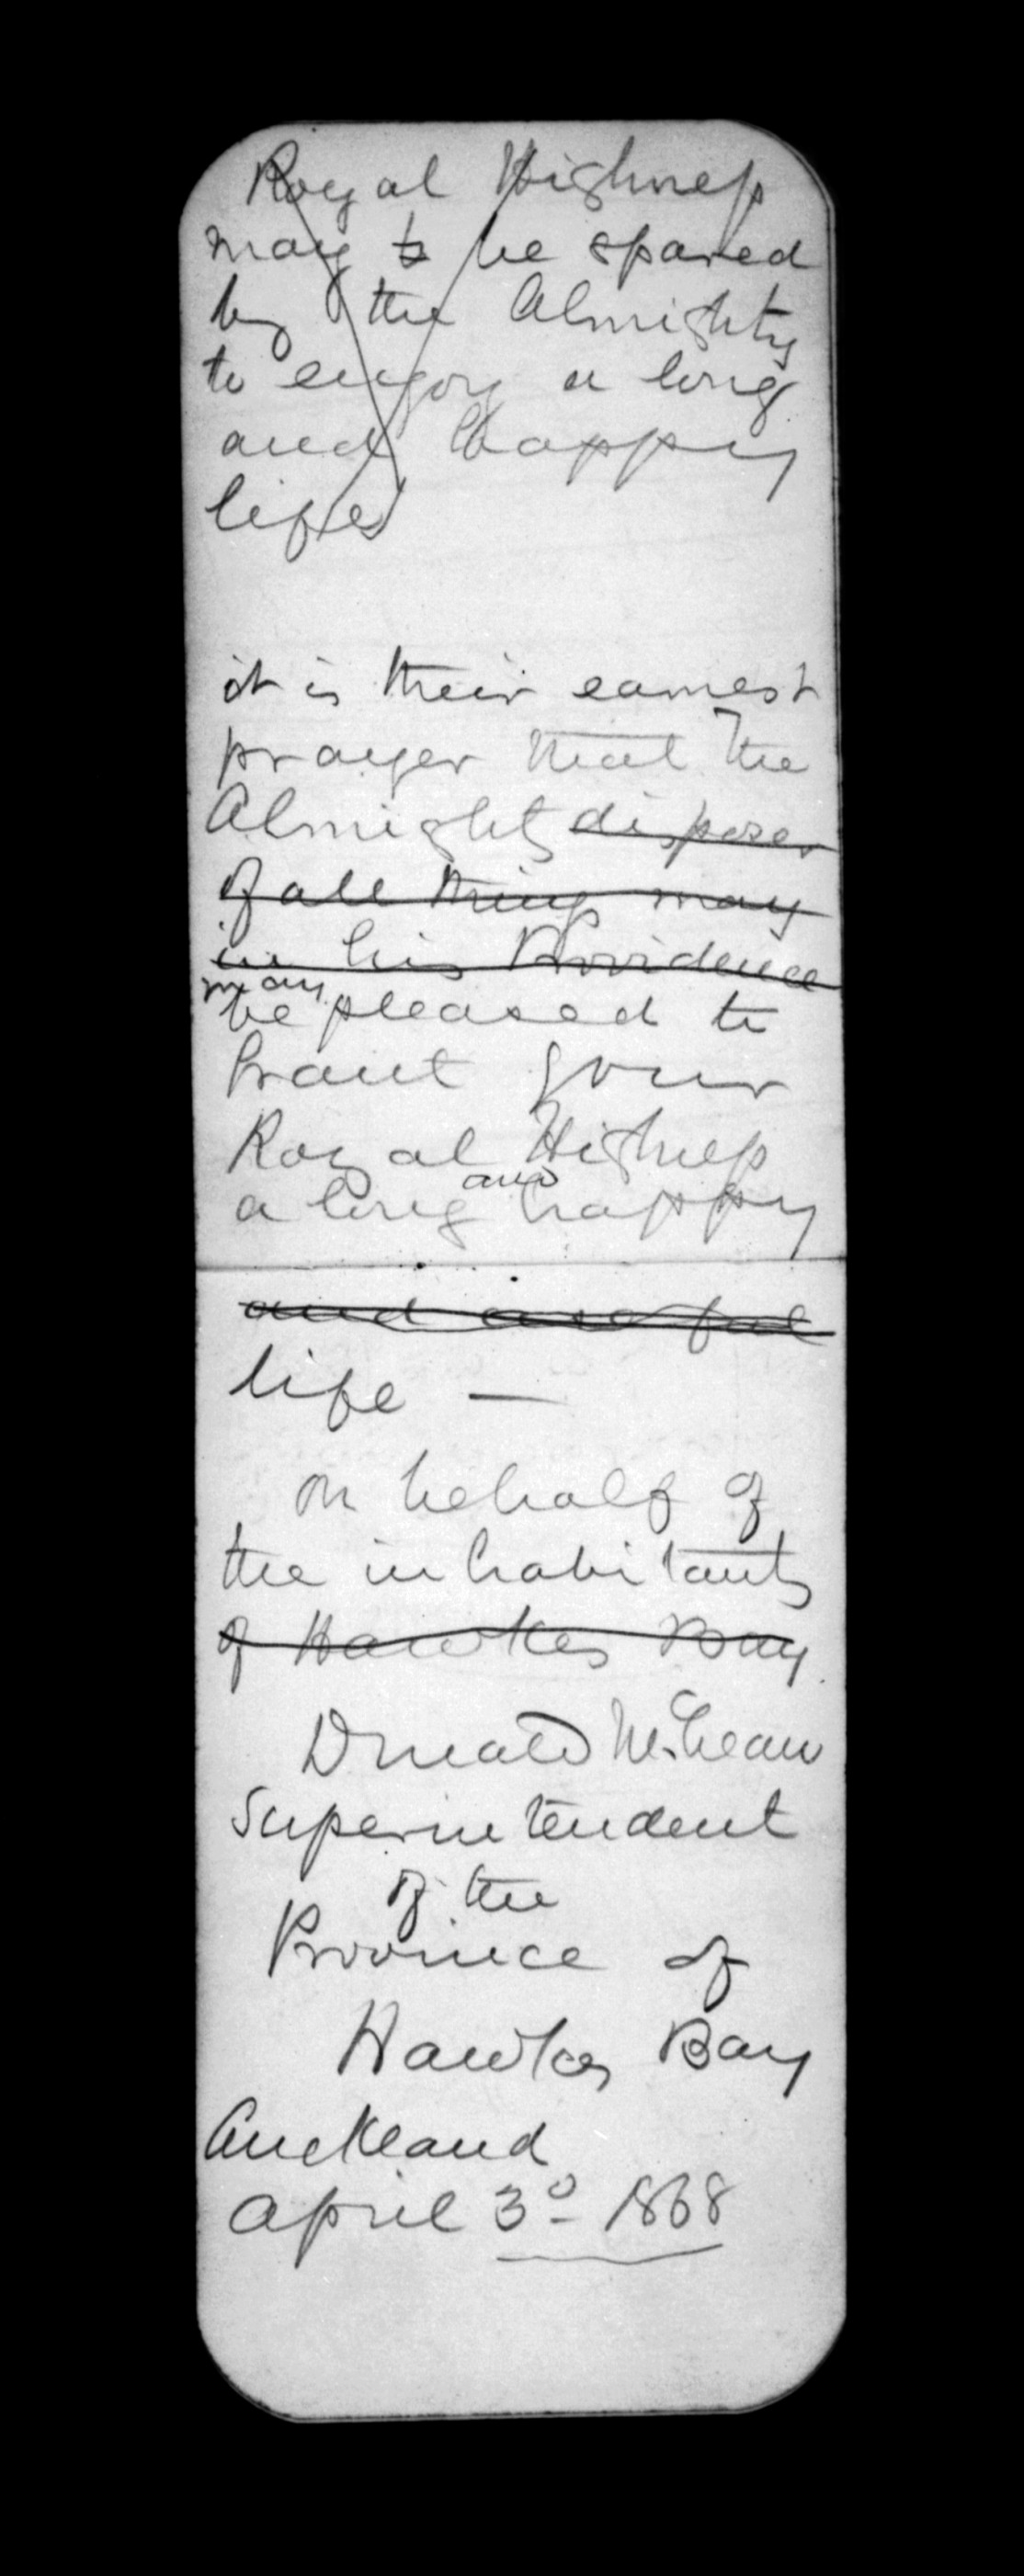 Royal Highness
may to be spared
by the Almighty
to enjoy a long
and happy
life
it is their earnest
prayer that the
Almighty disposer
of all things may
in his Providence
may
be pleased to
Grant your
Royal Highness
and
a long happy
and useful
life —
on behalf of
the inhabitants
of Hawkes Bay
Donald McLean
Superintendent
of the
Province of
Hawkes Bay
Auckland
April 3d 1868